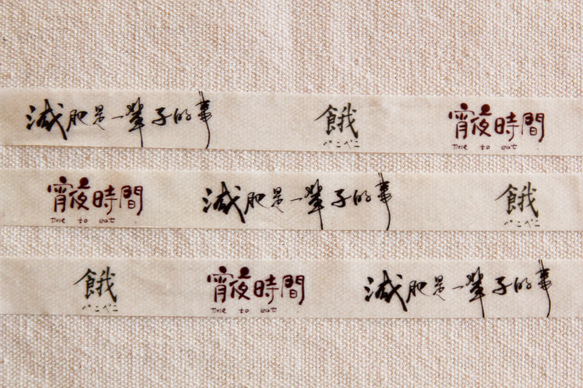 減肥是一輩子的事 餓 宵夜時間
ぺこぺこ time to eat
宵夜時間 減肥是一輩子的事 餓
time to eat ぺこぺこ
餓 宵夜時間 減肥是一輩子的事
ぺこぺこ time to eat